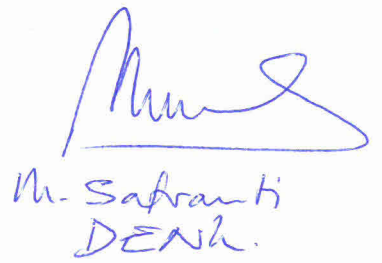 M. Safranti
DENR.